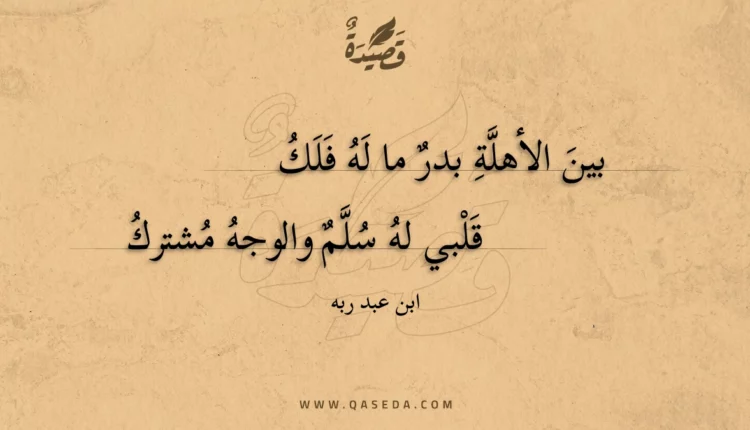 قَصِيْدَةٌ
بينَ الأهلَّةِ بدرٌ ما لَهُ فَلَكُ
قَلْبي لهُ سُلَّمٌ والوجهُ مُشتركُ
ابن عبد ربه
WWW.QASEDA.COM